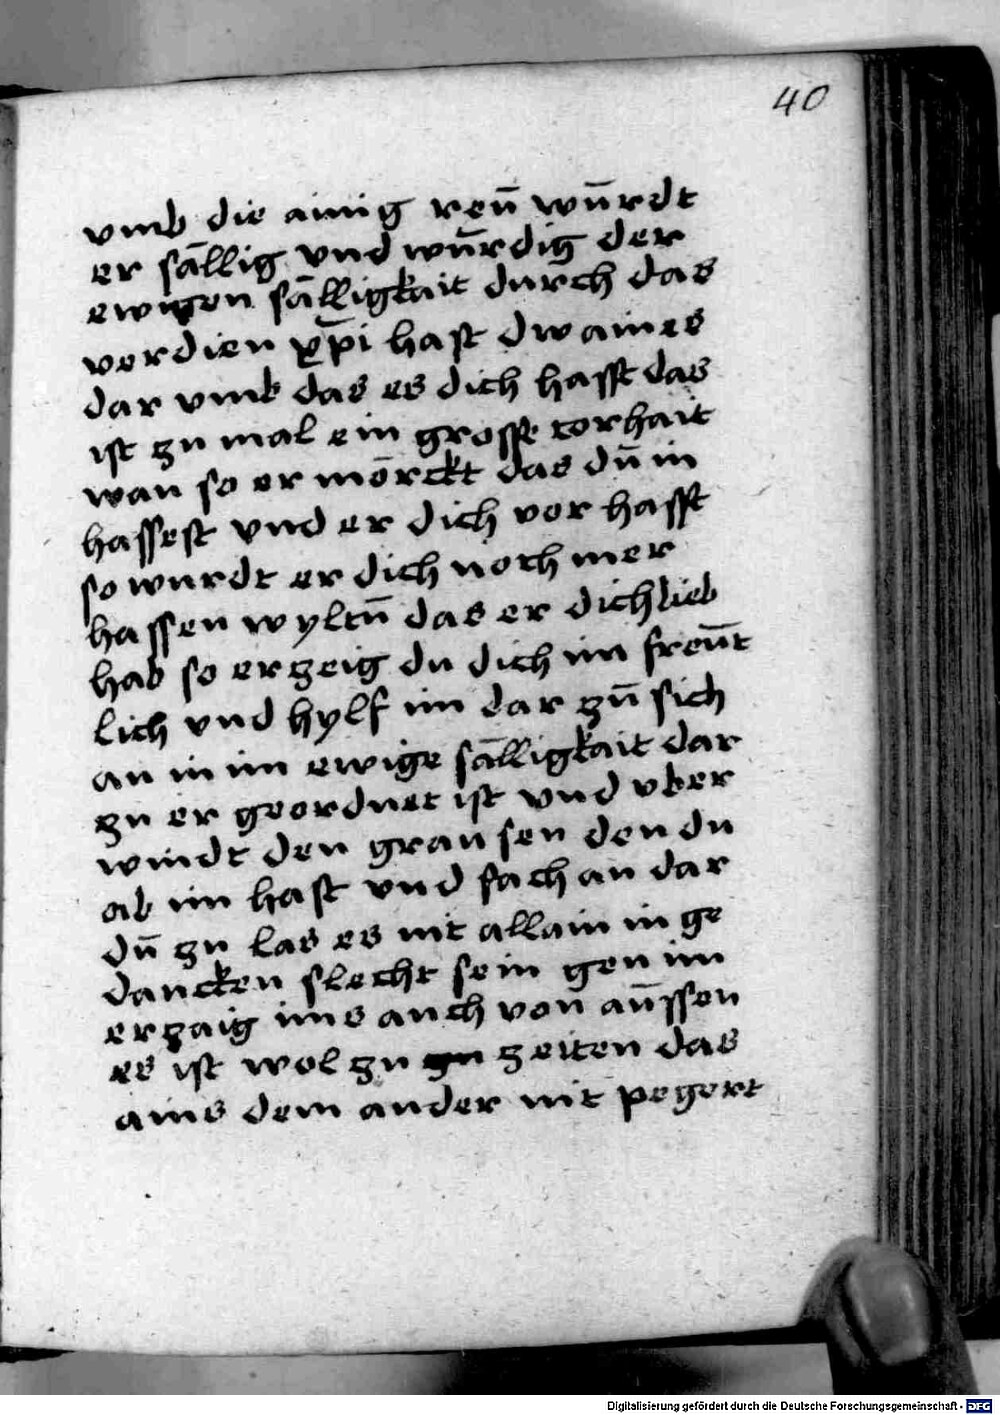 40
vmb die ainig reẅ wu̅rdt
er sällig vnd wu̅rdig der
ewigen sälligkait durch das
verdien xp̄i hast dw aines
dar vmb das es dich hasst das
ist zu mal ein grosse torhait
wan so er mörckt das du̅ in
hassest vnd er dich vor hasst
so wurdt er dich noch mer
hassen wyltu̅ das er dich lieb
hab so erzeig du dich im freu̅t
lich vnd hylf im dar zu̅ sich
an in im ewige sälligkait dar
zu er geordnet ist vnd vber
windt den grausen den du
ab im hast vnd fach an dar
du̅ zu las es nit allain in ge
dancken slecht sein gen im
erzaig ims auch von au̅ssen
es ist wol zu zeiten das
ains dem ander nit pegert
Digitalisierung gefördert durch die Deutsche Forschungsgemeinschaft - DFG